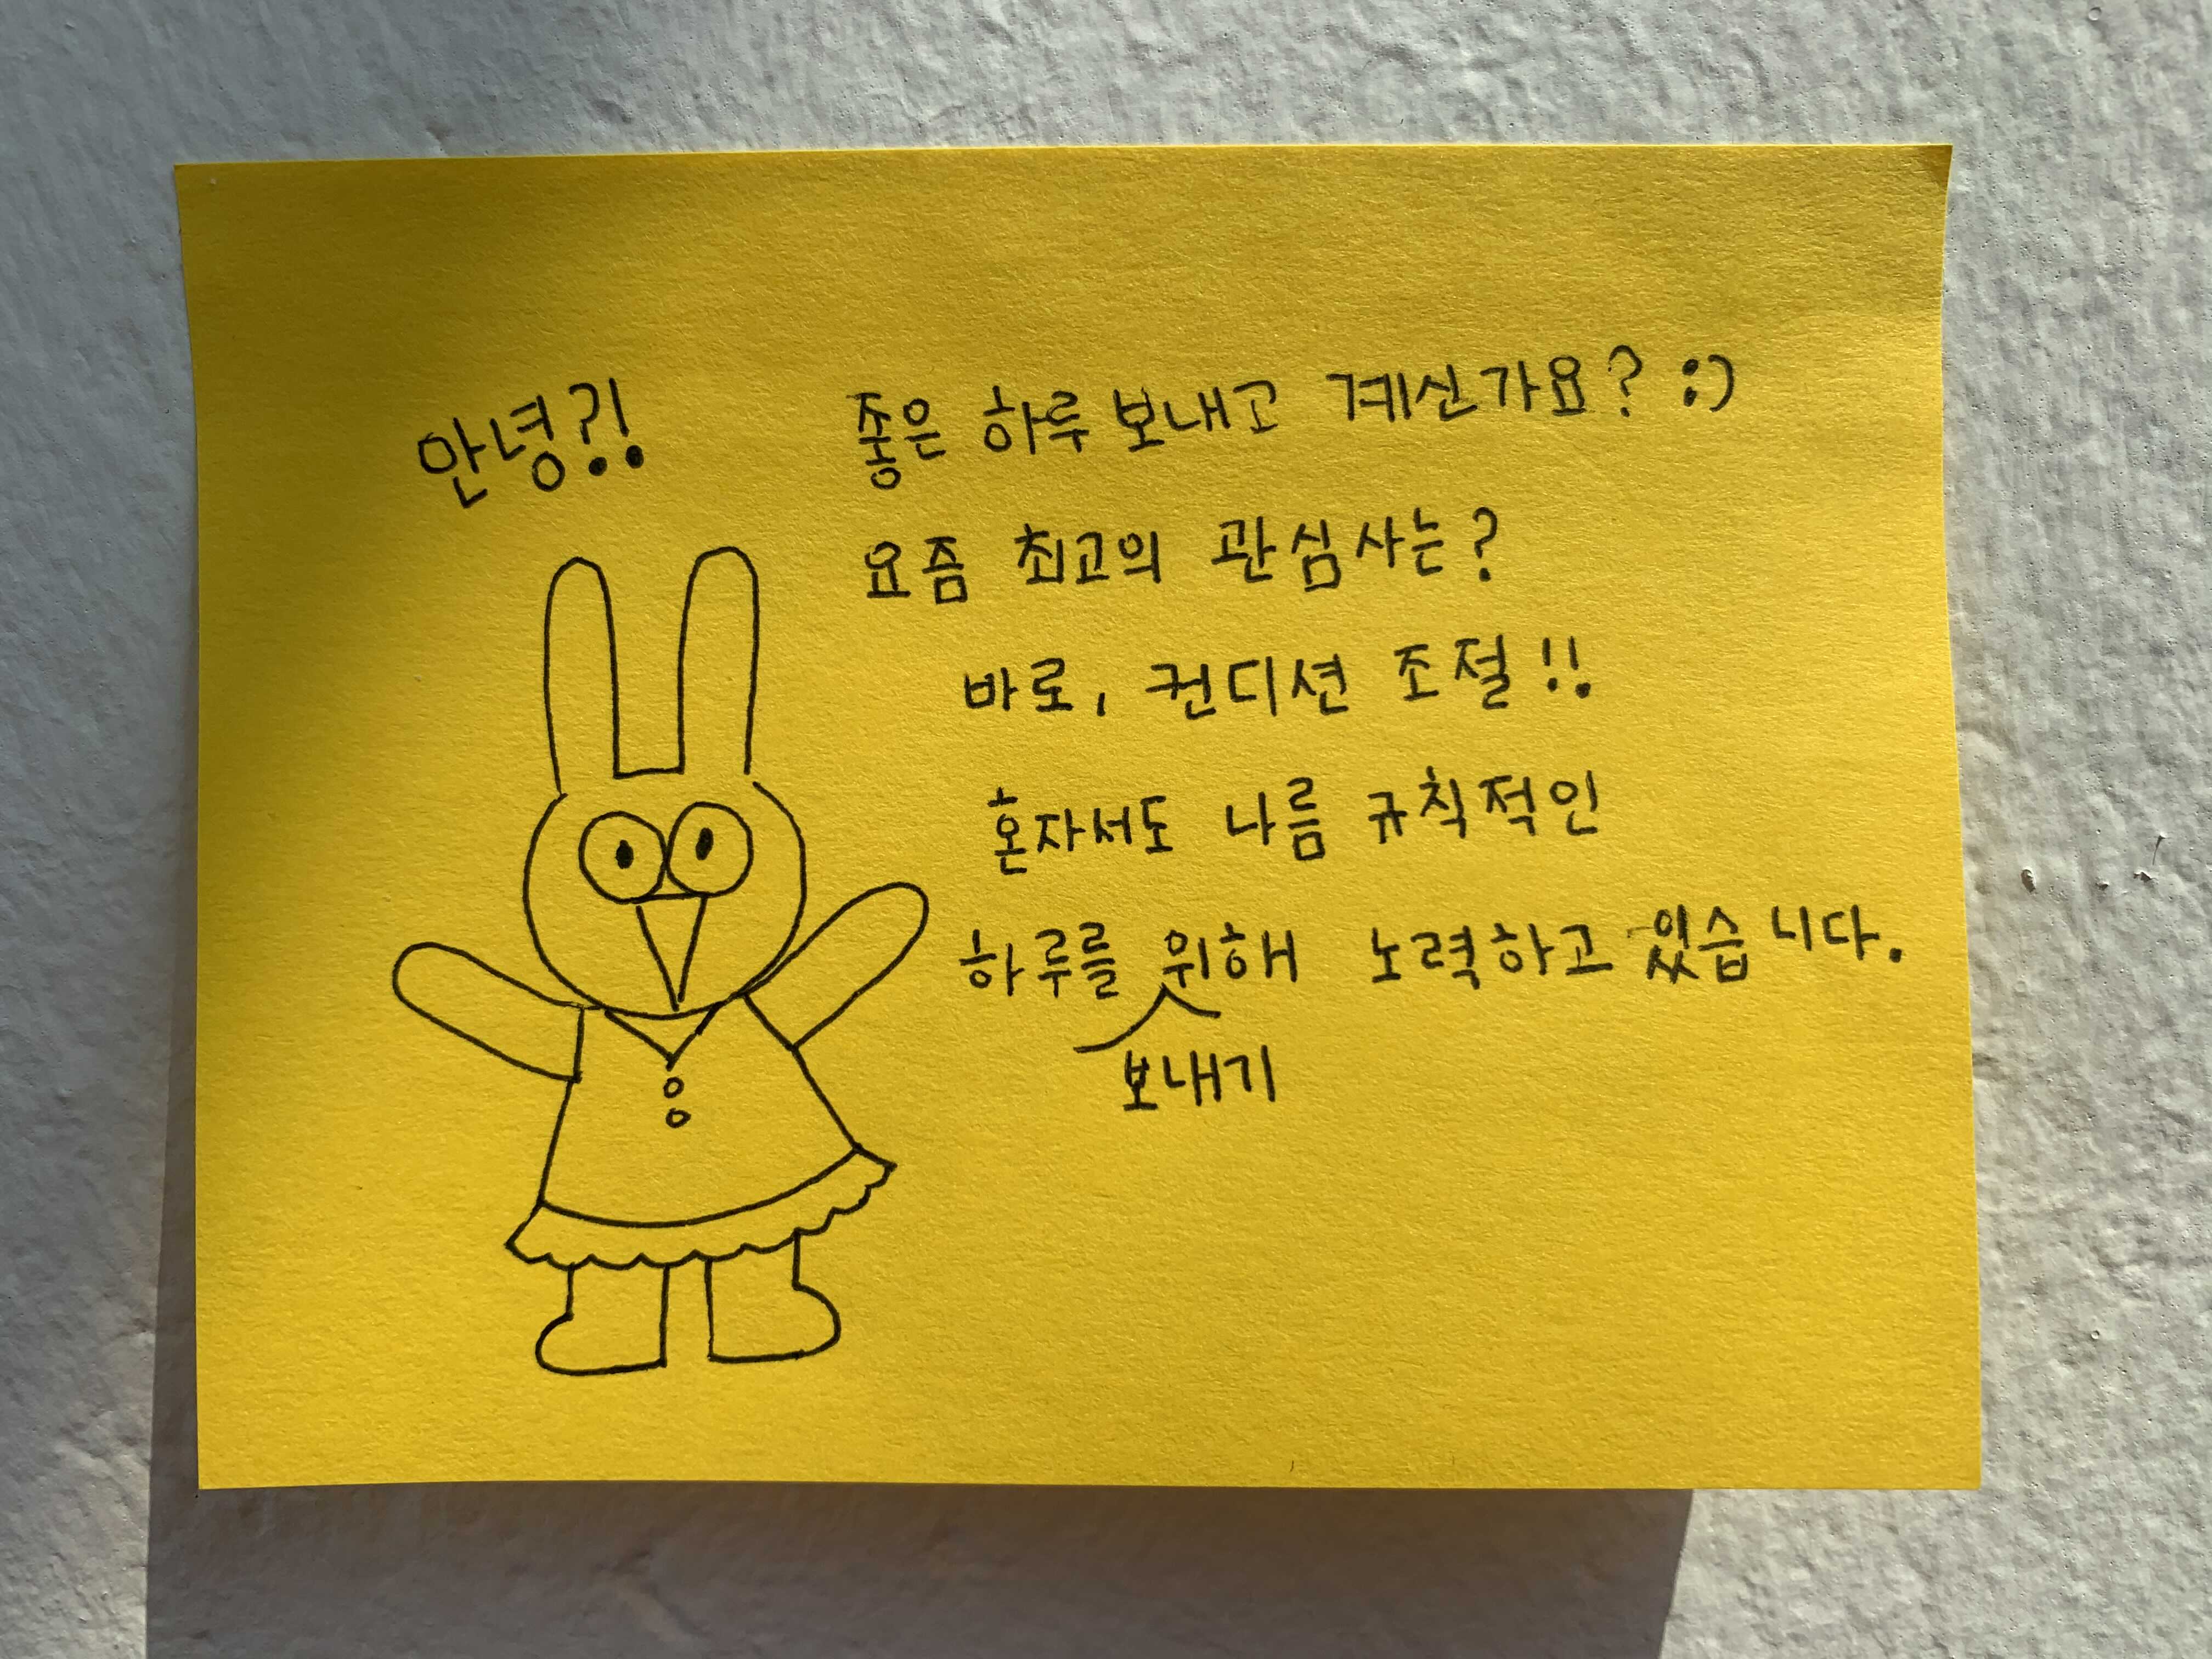 안녕?!
좋은 하루 보내고 계신가요? :)
요즘 최고의 관심사는?
바로, 컨디션 조절!!
혼자서도 나름 규칙적인
하루를 위해 노력하고 있습니다.
보내기